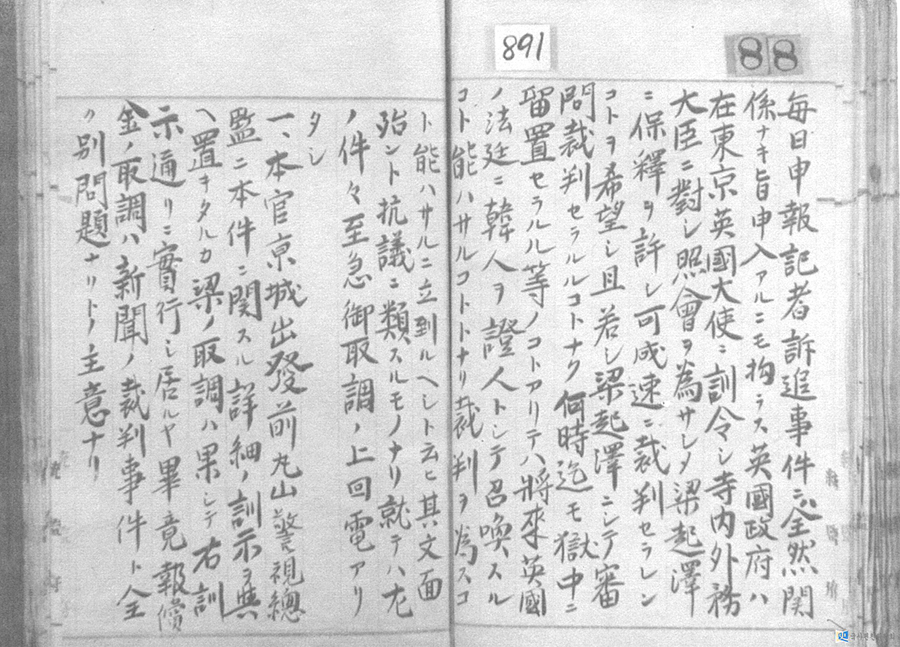 891
88
毎日申報記者訴追事件ニハ全然関
係ナキ旨申入アルニモ拘ラス英國政府ハ
在東京英國大使ニ訓令シ寺内外務
大臣ニ對シ照會ヲ為サシメ梁起澤
ニ保釋ヲ許シ可成速ニ裁判セラレン
コトヲ希望シ且若シ梁起澤ニシテ審
問裁判セラルルコトナク何時迄モ獄中ニ
留置セラルル等ノコトアリテハ將來英國
ノ法廷ニ韓人ヲ證人トシテ召喚スル
コト能ハサルコトトナリ裁判ヲ為スコ
ト能ハサルニ立到ルヘシト云ヒ其文面
殆ント抗議ニ類スルモノナリ就テハ左
ノ件々至急御取調ノ上回電アリ
タシ
一、本官京城出發前丸山警視總
監ニ本件ニ関スル詳細ノ訓示ヲ與
ヘ置キタルカ梁ノ取調ハ果シテ右訓
示通リニ實行シ居ルヤ畢竟報償
金ノ取調ハ新聞ノ裁判事件ト全
ク別問題ナリトノ主意ナリ